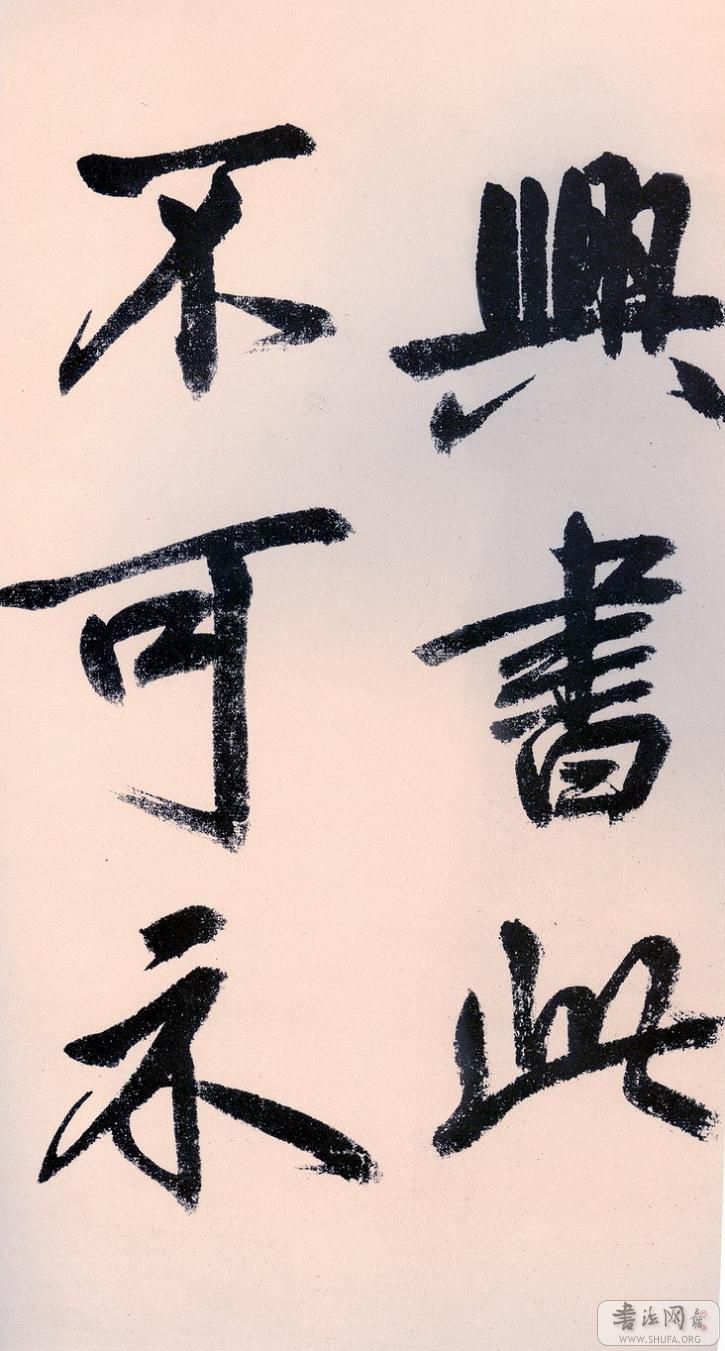 興書此
不可示
書法网
WWW.SHUFA.ORG